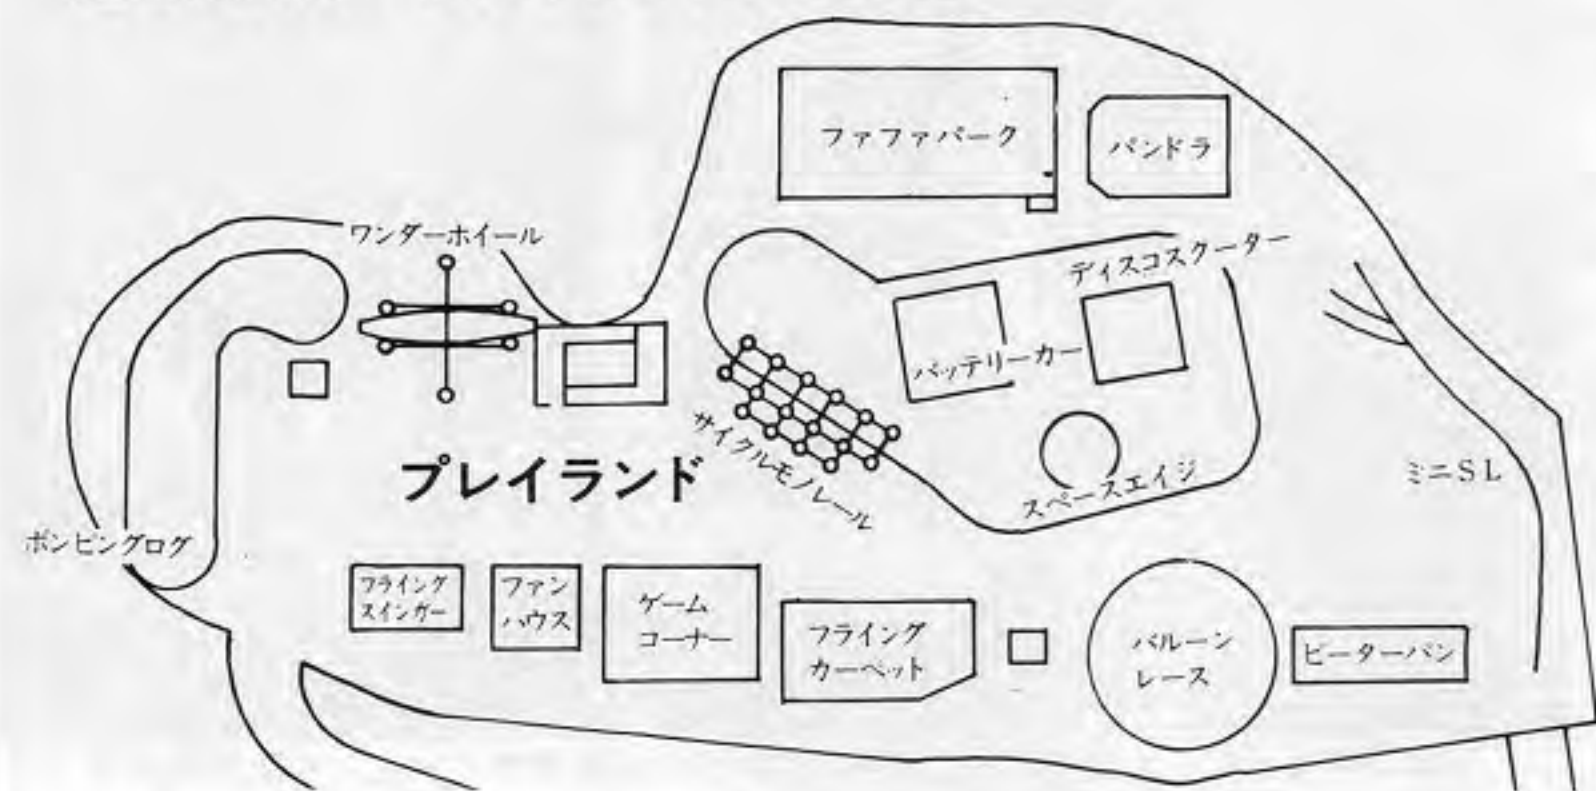 ファファパーク
パンドラ
ワンダーホイール
ディスコスクーター
バッテリーカー
サイクルモノレール
プレイランド
スペースエイジ
ミニSL
ボンピングログ
フライング
スインガー
ファン
ハウス
ゲーム
コーナー
フライング
カーペット
バルーン
レース
ピーターパン